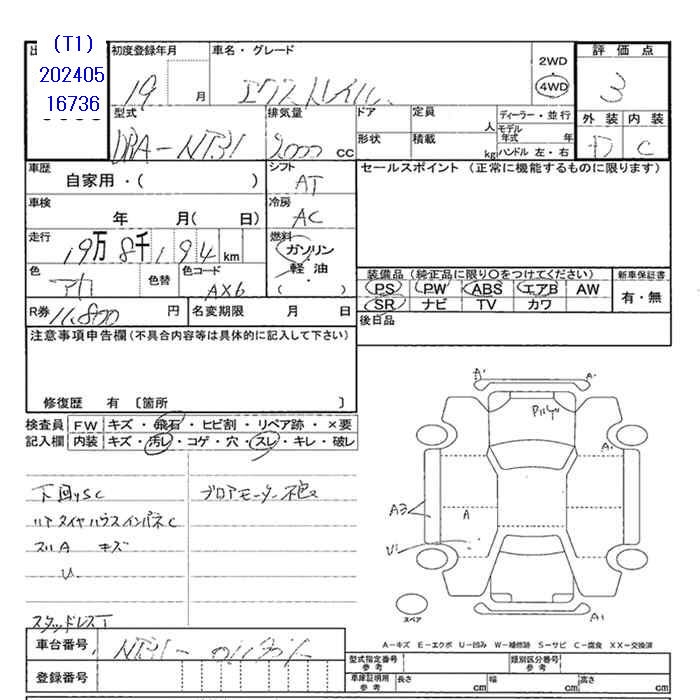 (T1)
202405
16736
初度登録年月
19
月
車名・グレード
エクストレイル
2WD
4WD
評価点
3
外装 内装
D C
型式
DBA-NT31
排気量
2000 CC
ドア
定員
人
形状
積載
kg
ディーラー・並行
モデル年式 年
ハンドル 左・右
車歴
自家用・( )
シフト
AT
セールスポイント (正常に機能するものに限ります)
車検
年 月( 日)
冷房
AC
走行
19万8千194km
燃料
ガソリン
軽油
( )
色
アカ
色替
色コード
AX6
装備品(純正品に限り○をつけてください)
PS PW ABS エアB AW
SR ナビ TV カワ
新車保証書
有・無
R券 11,870 円
名変期限 月 日
後日品
注意事項申告欄(不具合内容等は具体的に記入して下さい)
修復歴 有 〔箇所 〕
検査員記入欄
FW キズ・飛石・ヒビ割・リペア跡・×要
内装 キズ・汚レ・コゲ・穴・スレ・キレ・破レ
下回りSC
ブロアモーター
リアタイヤハウスインパネC
スリA キズ
U
スタッドレスT
A1
A-
A1
A3
A
U1
A1
スペア
車台番号
NT31-
登録番号
A-キズ E-エクボ U-凹み W-補修跡 S-サビ C-腐食 XX-交換済
型式指定番号 参考
類別区分番号 参考
車庫証明用 参考
長さ cm
幅 cm
高さ cm